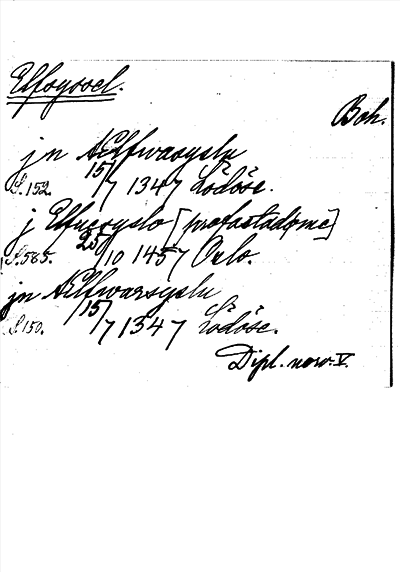 Elfsyssel.
Boh.
jn Ælfwasyslu
S. 152. 15/7 1347 Lödöse.
j Elfuesyslo [profastadøme]
S. 585. 25/10 1457 Oslo.
jn Ælfwarsyslu
S. 150. 15/7 1347 Lödöse.
Dipl. norv. V.